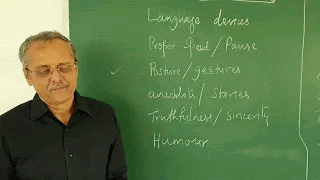 Language devices
Proper Speed / Pause
✓ Posture / gestures
anecdots / Stories
Truthfulness / Sincerity
Humour